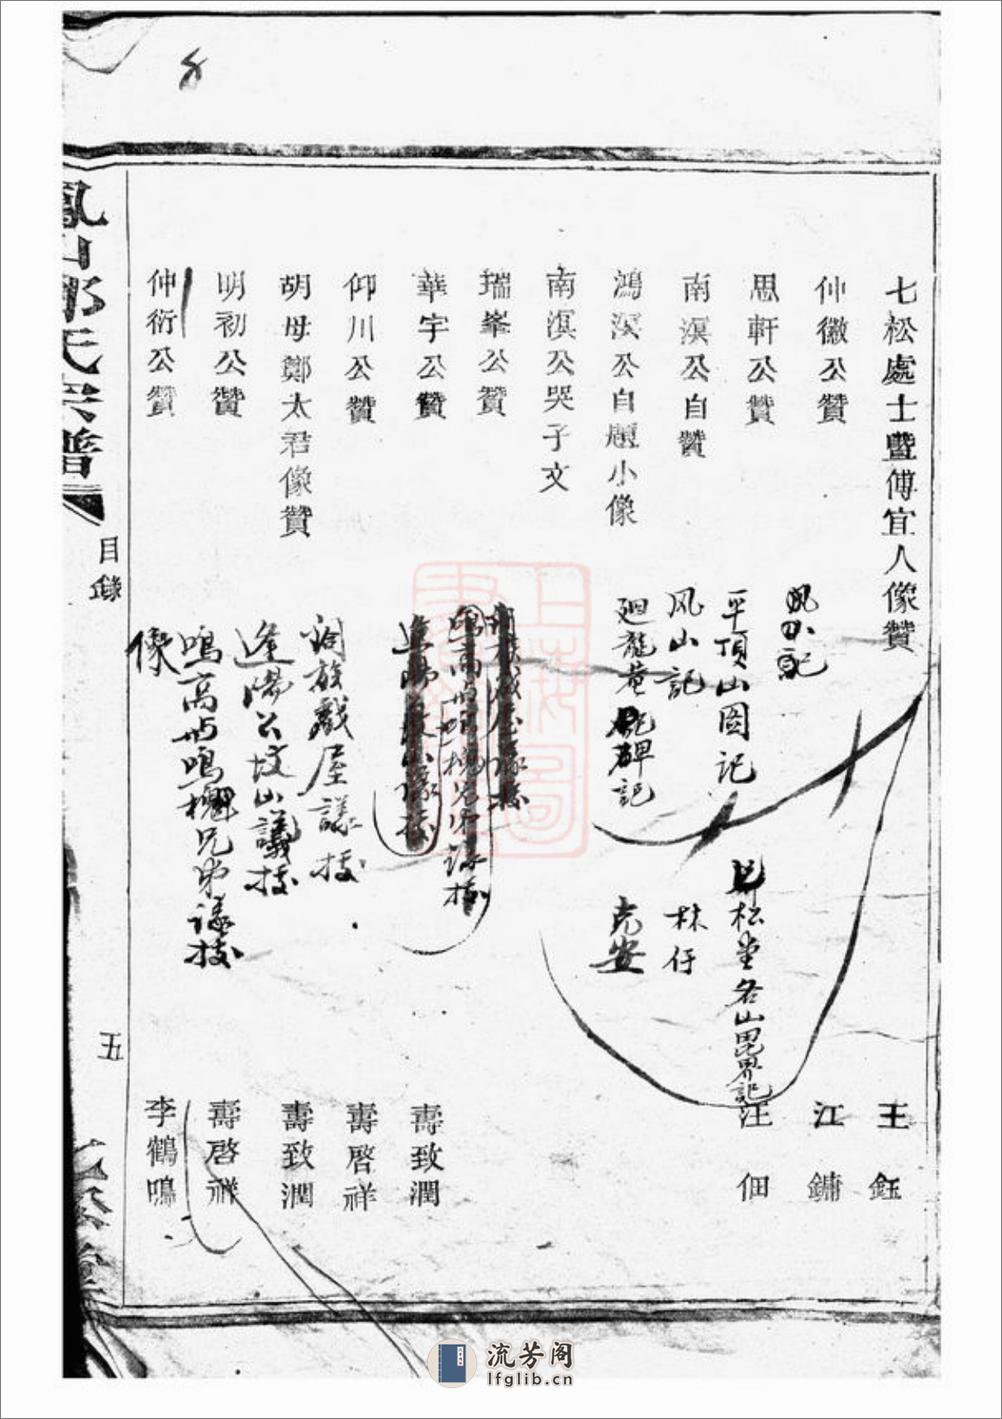 七松處士暨傅宜人像贊 王鈺
仲徽公贊 江鏞
思軒公贊 汪佃
南溟公自贊
鴻溟公自題小像
南溟公哭子文
瑞峯公贊
華宇公贊 壽致潤
仰川公贊 壽啓祥
胡母鄭太君像贊 壽致潤
明初公贊 壽啓祥
仲衍公贊 李鶴鳴
平頂山图记
松堂名山界記
风山記
林仔
廻龍菴碑記
克安
族戯屋議
逢陽公坟山議
鳴高与鳴槐兄弟議
像
鳳山鄭氏宗譜
目錄
五
上海圖書館藏
流芳阁
lfglib.cn